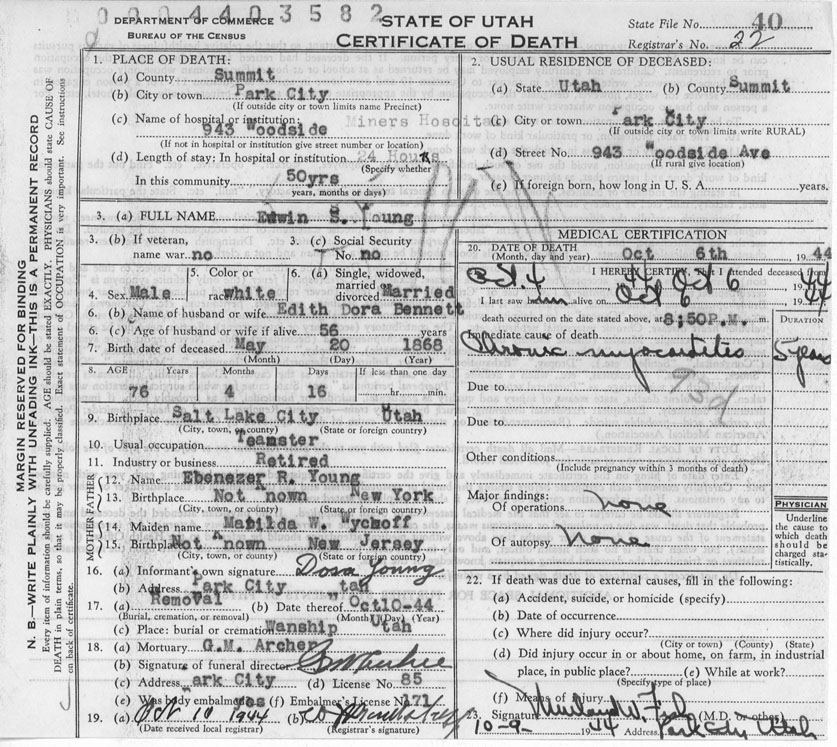 0004403582
DEPARTMENT OF COMMERCE
BUREAU OF THE CENSUS
STATE OF UTAH
CERTIFICATE OF DEATH
State File No. 40
Registrar's No. 22
MARGIN RESERVED FOR BINDING
N. B.—WRITE PLAINLY WITH UNFADING INK—THIS IS A PERMANENT RECORD
Every item of information should be carefully supplied. AGE should be stated EXACTLY. PHYSICIANS should state CAUSE OF
DEATH in plain terms, so that it may be properly classified. Exact statement of OCCUPATION is very important. See instructions
on back of certificate.
1. PLACE OF DEATH:
(a) County Summit
(b) City or town Park City
(If outside city or town limits name Precinct)
(c) Name of hospital or institution: Miners Hospital
943 Woodside
(If not in hospital or institution give street number or location)
(d) Length of stay: In hospital or institution 24 Hours
(Specify whether
In this community 50yrs
years, months or days)
2. USUAL RESIDENCE OF DECEASED:
(a) State Utah (b) County Summit
(c) City or town Park City
(If outside city or town limits write RURAL)
(d) Street No. 943 Woodside Ave
(If rural give location)
(e) If foreign born, how long in U. S. A. years.
3. (a) FULL NAME Edwin S. Young
3. (b) If veteran,
name war. no
3. (c) Social Security
No. no
4. Sex Male
5. Color or
race white
6. (a) Single, widowed,
married or
divorced Married
6. (b) Name of husband or wife Edith Dora Bennett
6. (c) Age of husband or wife if alive 56 years
7. Birth date of deceased May 20 1868
(Month) (Day) (Year)
8. AGE Years Months Days If less than one day
76 4 16 hr. min.
9. Birthplace Salt Lake City Utah
(City, town, or county) (State or foreign country)
10. Usual occupation Teamster
11. Industry or business Retired
FATHER
12. Name Ebenezer R. Young
13. Birthplace Not Known New York
(City, town, or county) (State or foreign country)
MOTHER
14. Maiden name Matilda W. Wyckoff
15. Birthplace Not Known New Jersey
(City, town, or county) (State or foreign country)
16. (a) Informant's own signature Dora Young
(b) Address Park City Utah
17. (a) Removal (b) Date thereof Oct10-44
(Burial, cremation, or removal) (Month) (Day) (Year)
(c) Place: burial or cremation Wanship Utah
18. (a) Mortuary G.M. Archer
(b) Signature of funeral director
(c) Address Park City (d) License No. 85
(e) Was body embalmed yes (f) Embalmer's License 171
19. (a) Oct 10 1944 (b)
(Date received local registrar) (Registrar's signature)
MEDICAL CERTIFICATION
20. DATE OF DEATH
(Month, day and year) Oct 6th 1944
I HEREBY CERTIFY, That I attended deceased from
Oct. 4 1944 Oct 6 1944
I last saw him alive on Oct 6 1944
death occurred on the date stated above, at 8;50P.M. m.
Immediate cause of death
Chronic myocarditis
DURATION
5 years
93d
Due to
Due to
Other conditions
(Include pregnancy within 3 months of death)
Major findings:
Of operations none
Of autopsy none
PHYSICIAN
Underline
the cause to
which death
should be
charged sta-
tistically.
22. If death was due to external causes, fill in the following:
(a) Accident, suicide, or homicide (specify)
(b) Date of occurrence
(c) Where did injury occur?
(City or town) (County) (State)
(d) Did injury occur in or about home, on farm, in industrial
place, in public place? (e) While at work?
(Specify type of place)
(f) Means of injury
23. Signature (M.D. or other)
10-9- 1944 Address Park City Utah